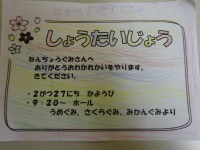 しょうたいじょう
えんちょうぐみさんへ
ありがとうおわかれかいをやります。
きてください。
・2がつ27にち かようび
・9:20～ ホール
うめぐみ、さくらぐみ、みかんぐみより